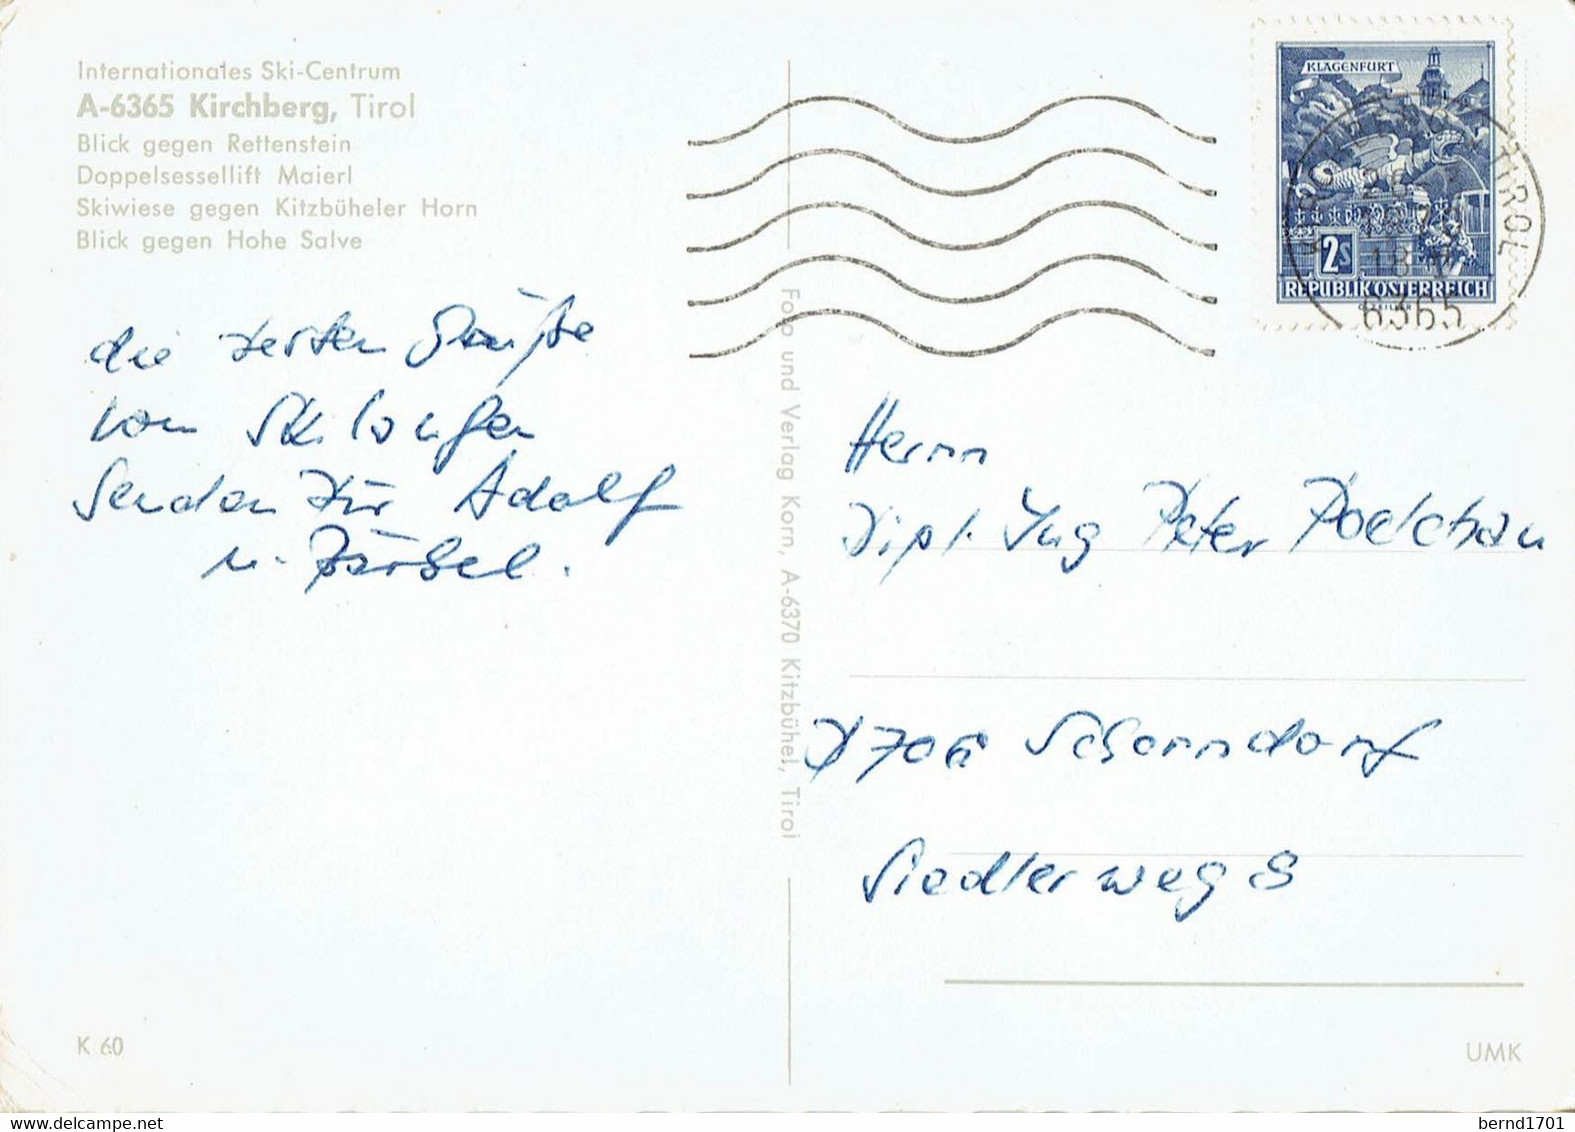 Internationales Ski-Centrum
A-6365 Kirchberg, Tirol
Blick gegen Rettenstein
Doppelsessellift Maierl
Skiwiese gegen Kitzbüheler Horn
Blick gegen Hohe Salve
KLAGENFURT
2S
REPUBLIK ÖSTERREICH
TIROL
18
6365
die besten Grüße
vom Skilaufen
senden Dir Adolf
u. Bärbel.
Foto und Verlag Korn, A-6370 Kitzbühel, Tirol
Herrn
Dipl. Ing Peter
D 706 Schorndorf
Siedlerweg 8
K 60
UMK
bernd1701